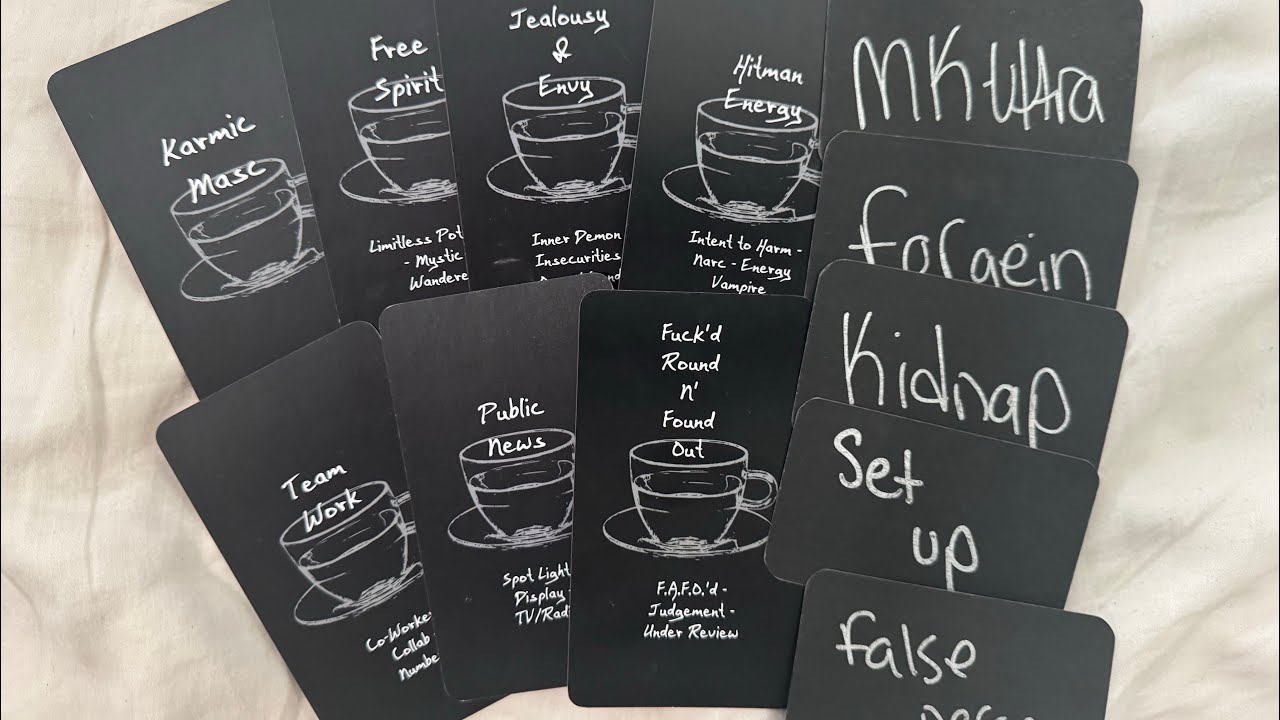 Karmic
Masc
Free
Spirit
Limitless Pot
- Mystic
Wandere
Jealousy
&
Envy
Inner Demon
Insecurities
Hitman
Energy
Intent to Harm -
Narc - Energy
Vampire
MK Ultra
Foragein
Kidnap
Set
up
False
Team
Work
Co-Worke
Collab
Numbe
Public
News
Spot Light
Display -
TV/Rad
Fuck'd
Round
N'
Found
Out
F.A.F.O.'d -
Judgement -
Under Review